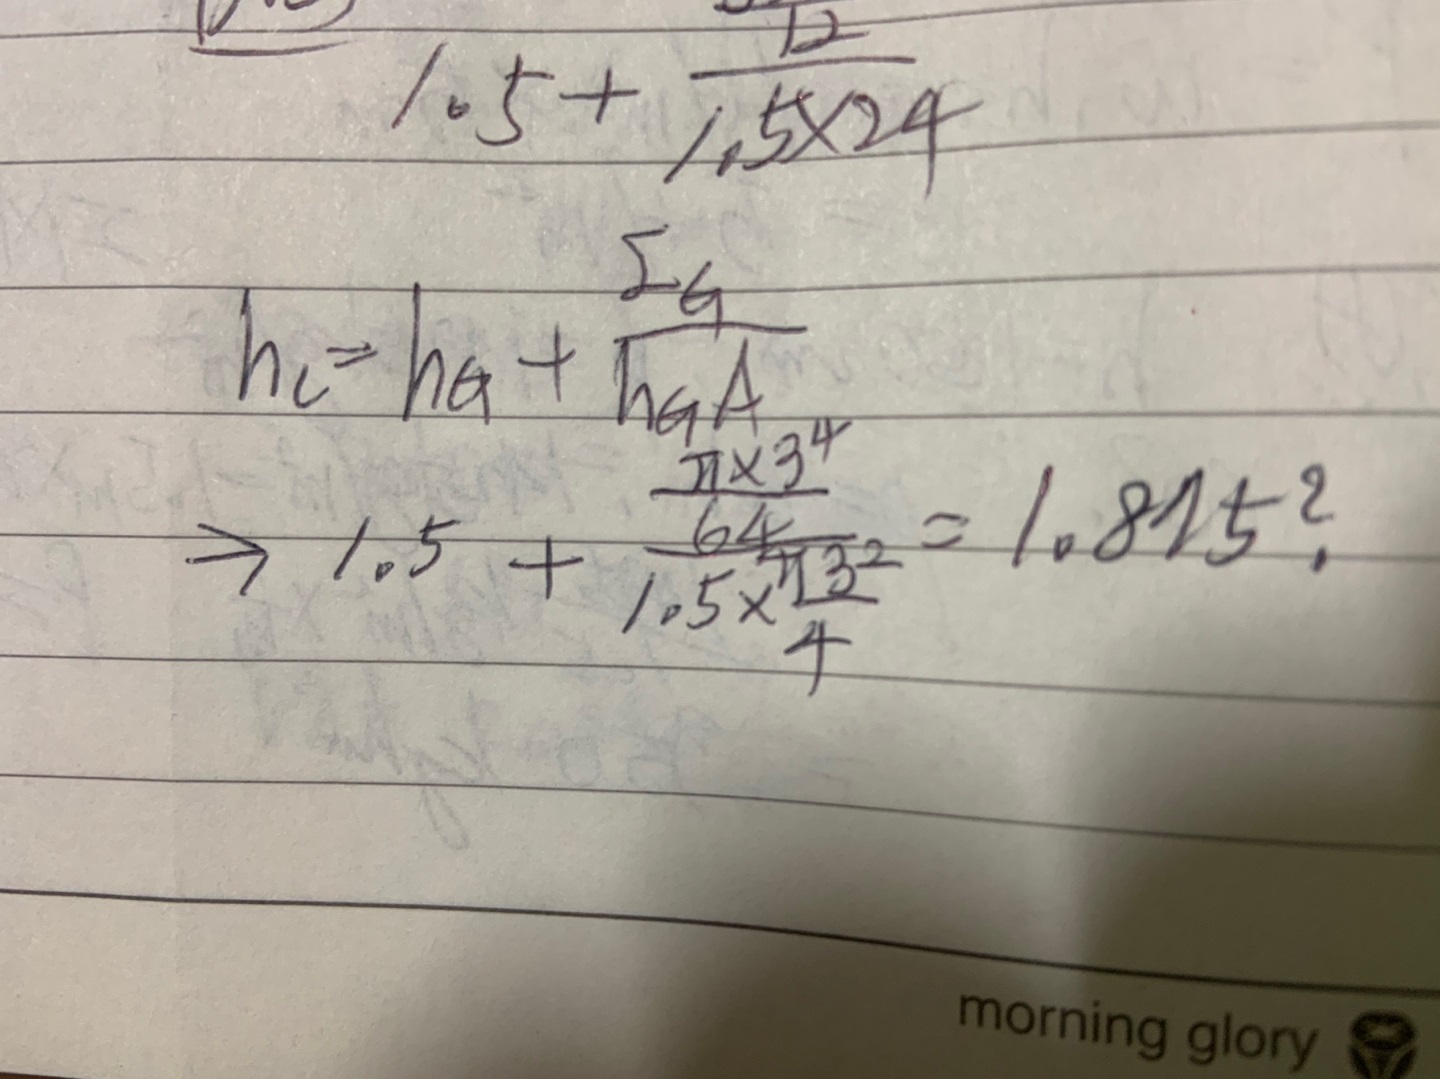 12
1.5 + ─────
1.5×24
h_c = h_G + I_G / (h_G A)
→ 1.5 + (π×3⁴ / 64) / (1.5 × π3² / 4) = 1.875?
morning glory